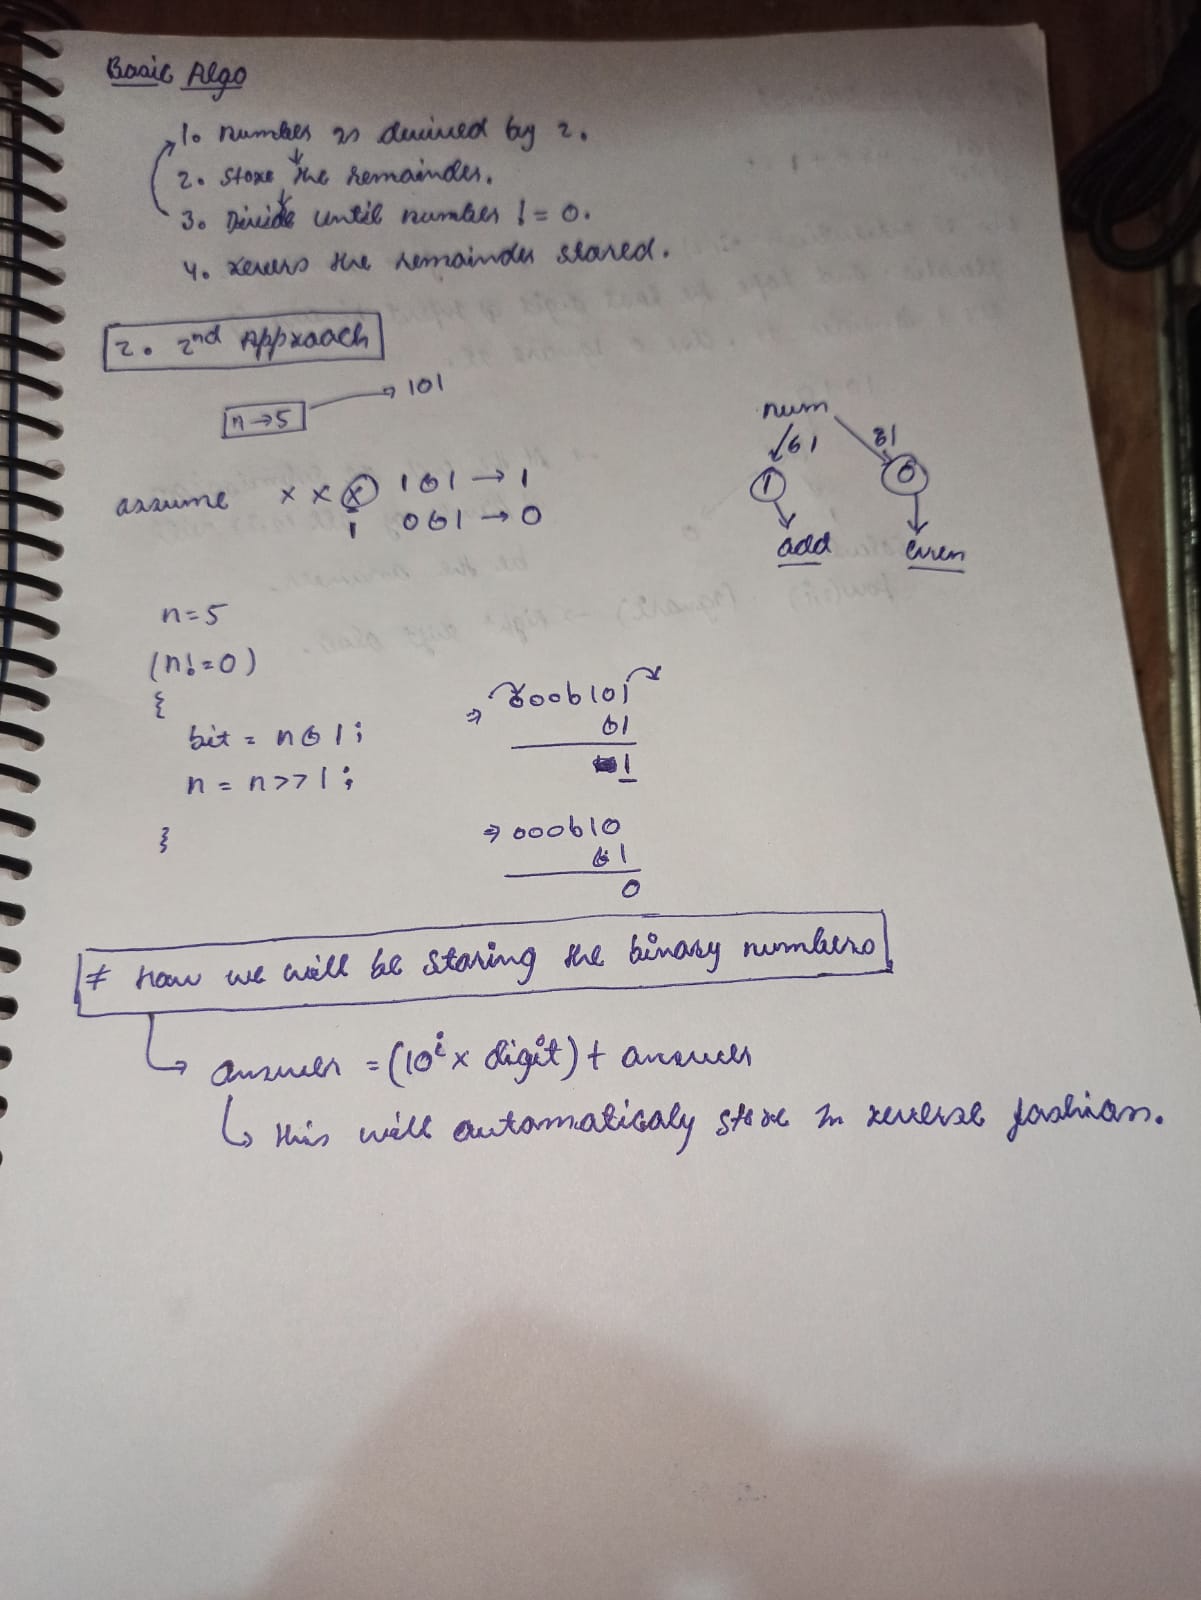 Basic Algo
1. number is devived by 2.
2. store the remainder.
3. Divide until number != 0.
4. revers the remainder stored.
2. 2nd Approach
n→5 → 101
num
&1 &1
1 0
odd even
assume x x x 1&1 → 1
1 0&1 → 0
n=5
(n!=0)
{
bit = n&1;
n = n>>1;
}
⇒ 0000101
&1
1
⇒ 000010
&1
0
# how we will be storing the binary numbers
answer = (10^i x digit) + answer
this will automaticaly store in reverse fashion.